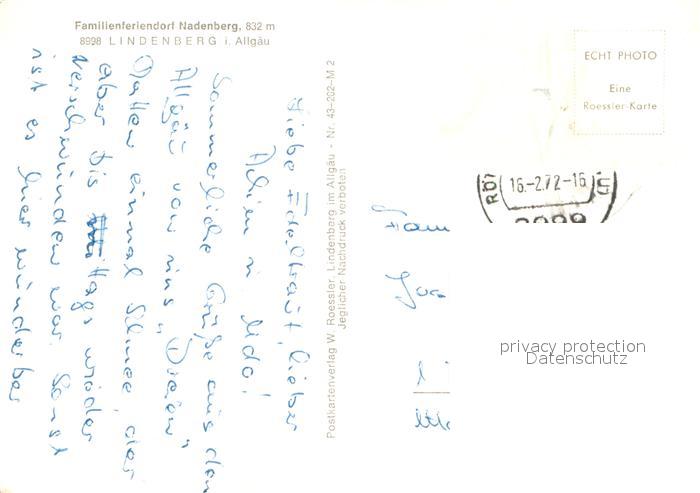 Familienferiendorf Nadenberg, 832 m
8998 LINDENBERG i. Allgäu
Liebe Edeltraut, lieber
Achim u. Udo!
Sommerliche Grüße aus dem
Allgäu von uns
Hatten einmal Schnee, der
aber bis Mittags wieder
verschwunden war. Sonst
ist es hier wunderbar
Postkartenverlag W. Roessler, Lindenberg im Allgäu - Nr. 43-202-M 2
Jeglicher Nachdruck verboten
ECHT PHOTO
Eine
Roessler-Karte
16.-2.72-16
Fam
privacy protection
Datenschutz